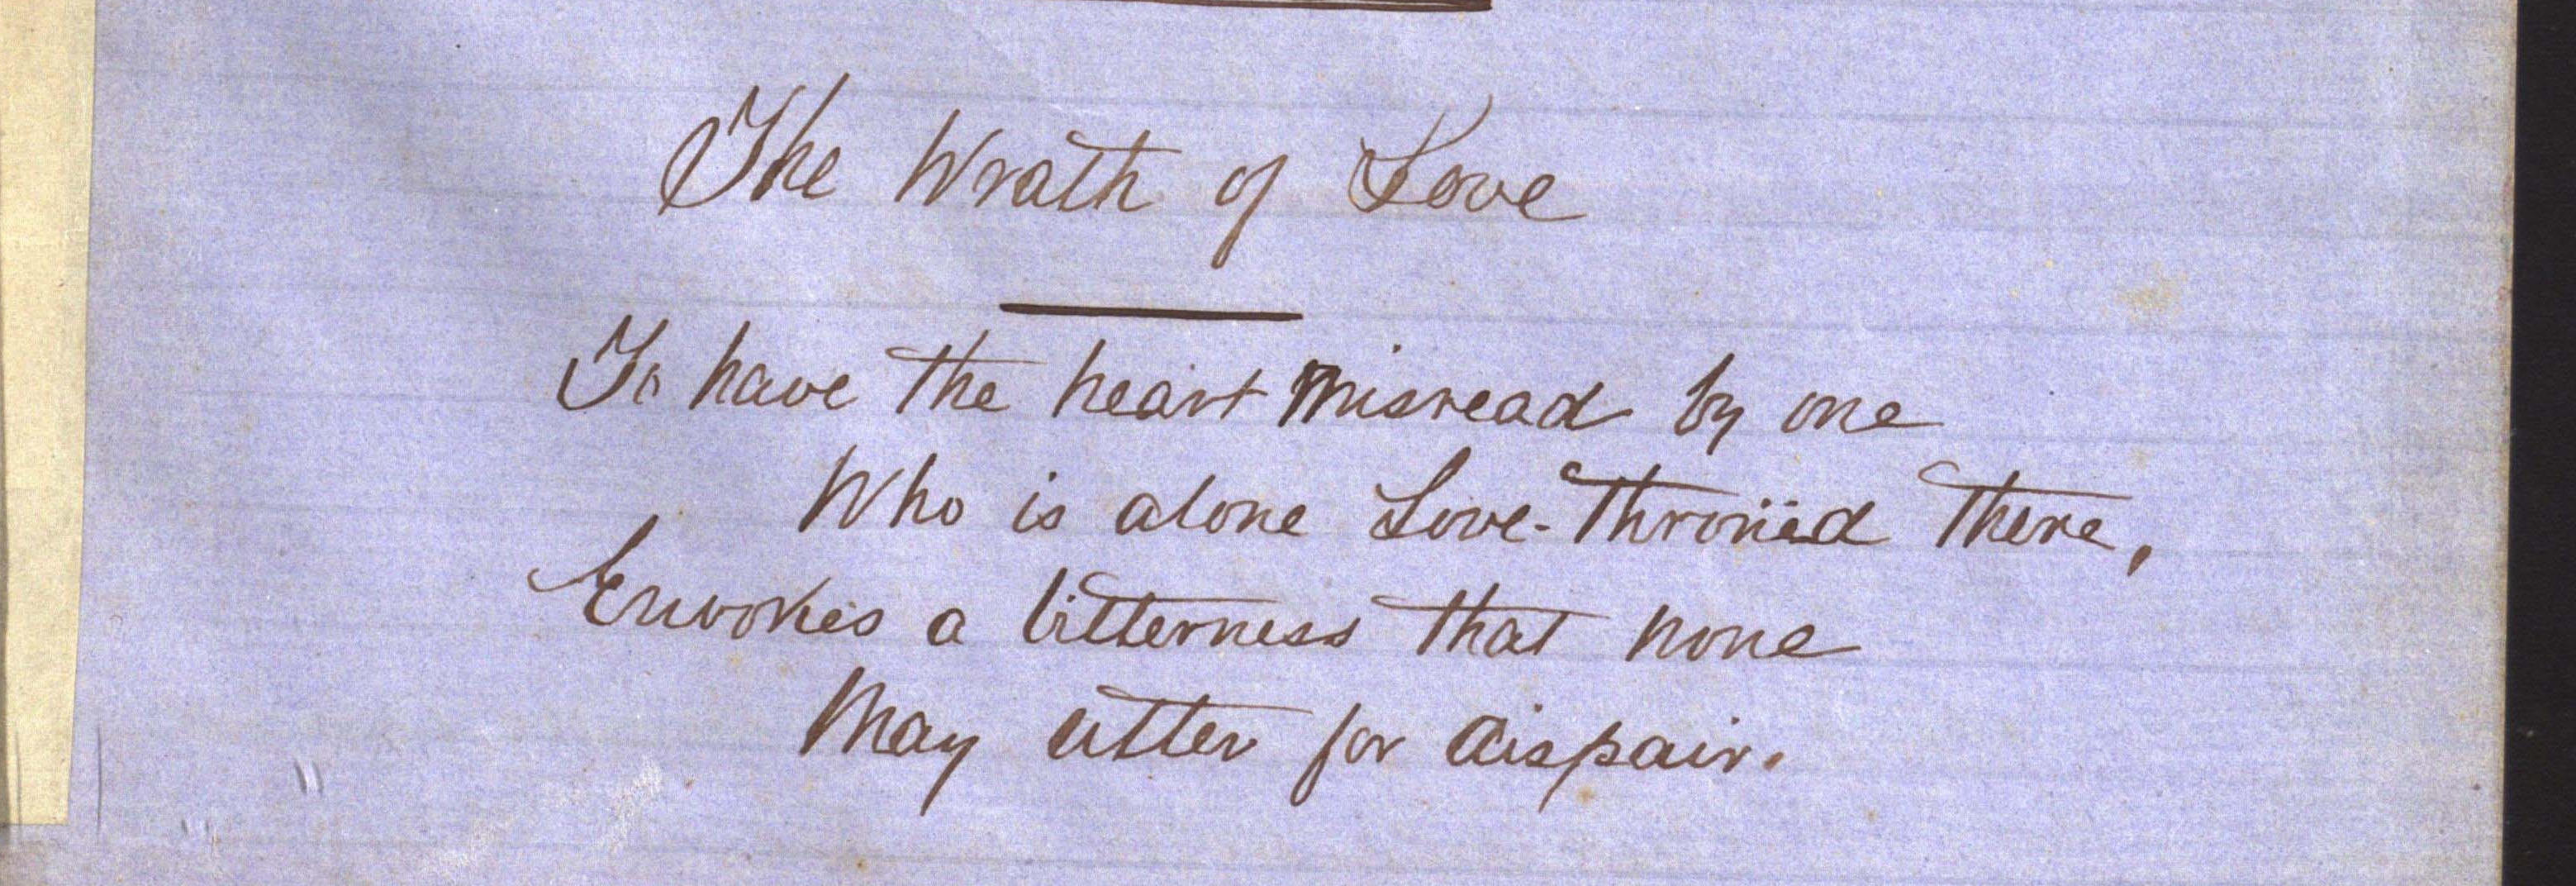 The Wrath of Love
To have the heart misread by one
Who is alone Love-Thronëd there,
Envokes a bitterness that none
May utter for dispair.